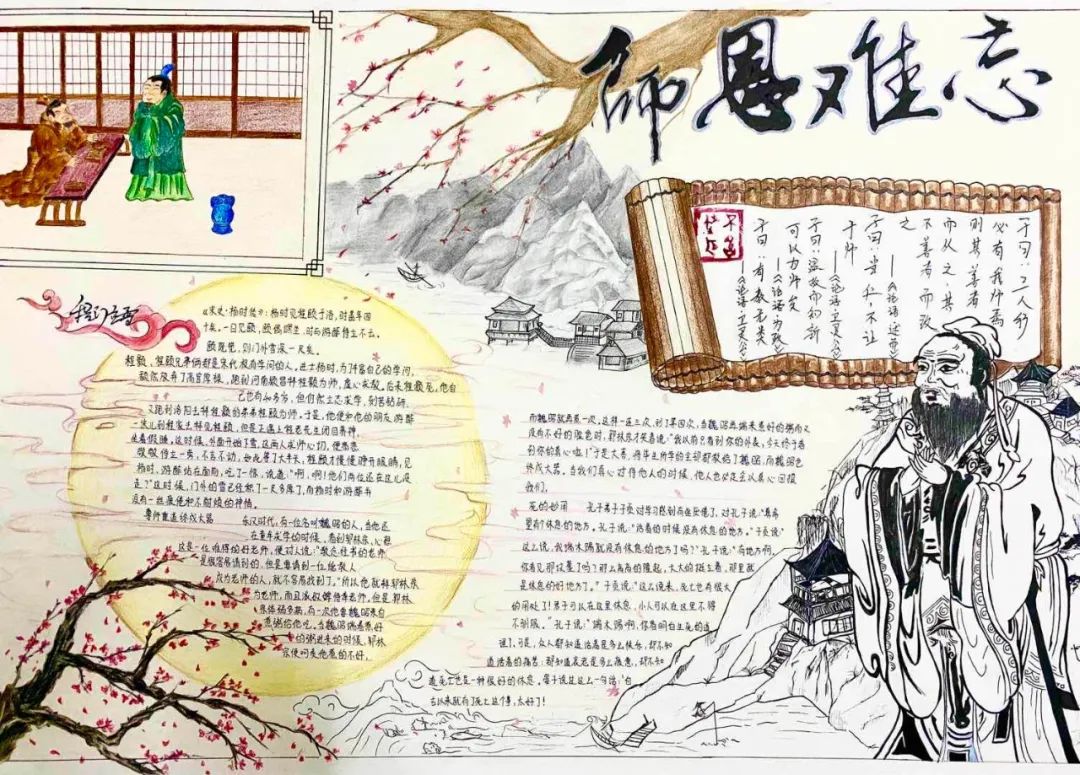 師恩难忘
子曰：三人行
必有我师焉
则其善者
而从之，其
不善者而改
之
——《论语·述而》
子曰：当仁，不让
于师
——《论语·卫灵公》
子曰：温故而知新
可以为师矣
——《论语·为政》
子曰：有教无类
——《论语·卫灵公》
程门立雪
《宋史·杨时传》：杨时见程颐于洛，时盖年四
十矣。一日见颐，颐偶瞑坐，时与游酢侍立不去。
颐既觉，则门外雪深一尺矣。
程颢、程颐兄弟俩都是宋代极有学问的人。进士杨时，为了丰富自己的学问，
毅然放弃了高官厚禄，跑到河南颍昌拜程颢为师，虚心求教。后来程颢死，他自
己也有40多岁，但仍然立志求学，刻苦钻研，
又跑到洛阳去拜程颢的弟弟程颐为师。于是，他便和他的朋友游酢
一块儿到程家去拜见程颐，但是正遇上程老先生闭目养神，
坐着假睡。这时候，外面开始下雪。这两人求师心切，便恭恭
敬敬侍立一旁，不言不动，如此等了大半天，程颐才慢慢睁开眼睛，见
杨时、游酢站在面前，吃了一惊，说道："啊，啊！他们两位还在这儿没
走？"这时候，门外的雪已经积了一尺多厚了，而杨时和游酢并
没有一丝疲倦和不耐烦的神情。
尊师重道终成大器
东汉时代，有一位名叫魏昭的人，当他还
在童年求学的时候，看到郭林宗，心想
这是一位难得的好老师，便对人说："教念经书的老师
是很容易请到的，但是要请到一位能教人
成为老师的人，就不容易找到了。"所以他就拜郭林宗
为老师，而且派奴婢侍奉老师。但是郭林
宗体弱多病，有一次他要魏昭亲自
煮粥给他吃。当魏昭端着煮好
的粥进来的时候，郭林
宗便呵责他煮的不好，
而魏昭就再煮一次。这样一连三次，到了第四次，当魏昭再端来煮好的粥而又
没有不好的脸色时，郭林宗才笑着说："我以前只看到你的外表，今天终于看
到你的真心啦！"于是大喜，将毕生所学的全部都教给了魏昭，而魏昭也
终成大器。当我们真心对待他人的时候，他人也必定会以真心回报
我们。
死的妙用
孔子弟子子贡对学习感到有些厌倦了，对孔子说："真希
望有个休息的地方。孔子说："活着的时候没有休息的地方。"子贡说"
这么说，我端木赐就没有休息的地方了吗？"孔子说："有地方啊，
你看见那坟墓了吗？那么高高的隆起，大大的挺立着，那里就
是休息的好地方了。"子贡说："这么说来，死亡也有很大
的用处了！君子可以在这里休息，小人可以在这里不得
不驯服。"孔子说："端木赐啊，你看明白生死的道
理了。可是，众人都知道活着是多么快乐，却不知
道活着的痛苦；都知道衰老是多么疲惫，却不知
道死亡也是一种很好的休息。晏子说过这么一句话："自
古以来就有了死亡这个事，太好了！